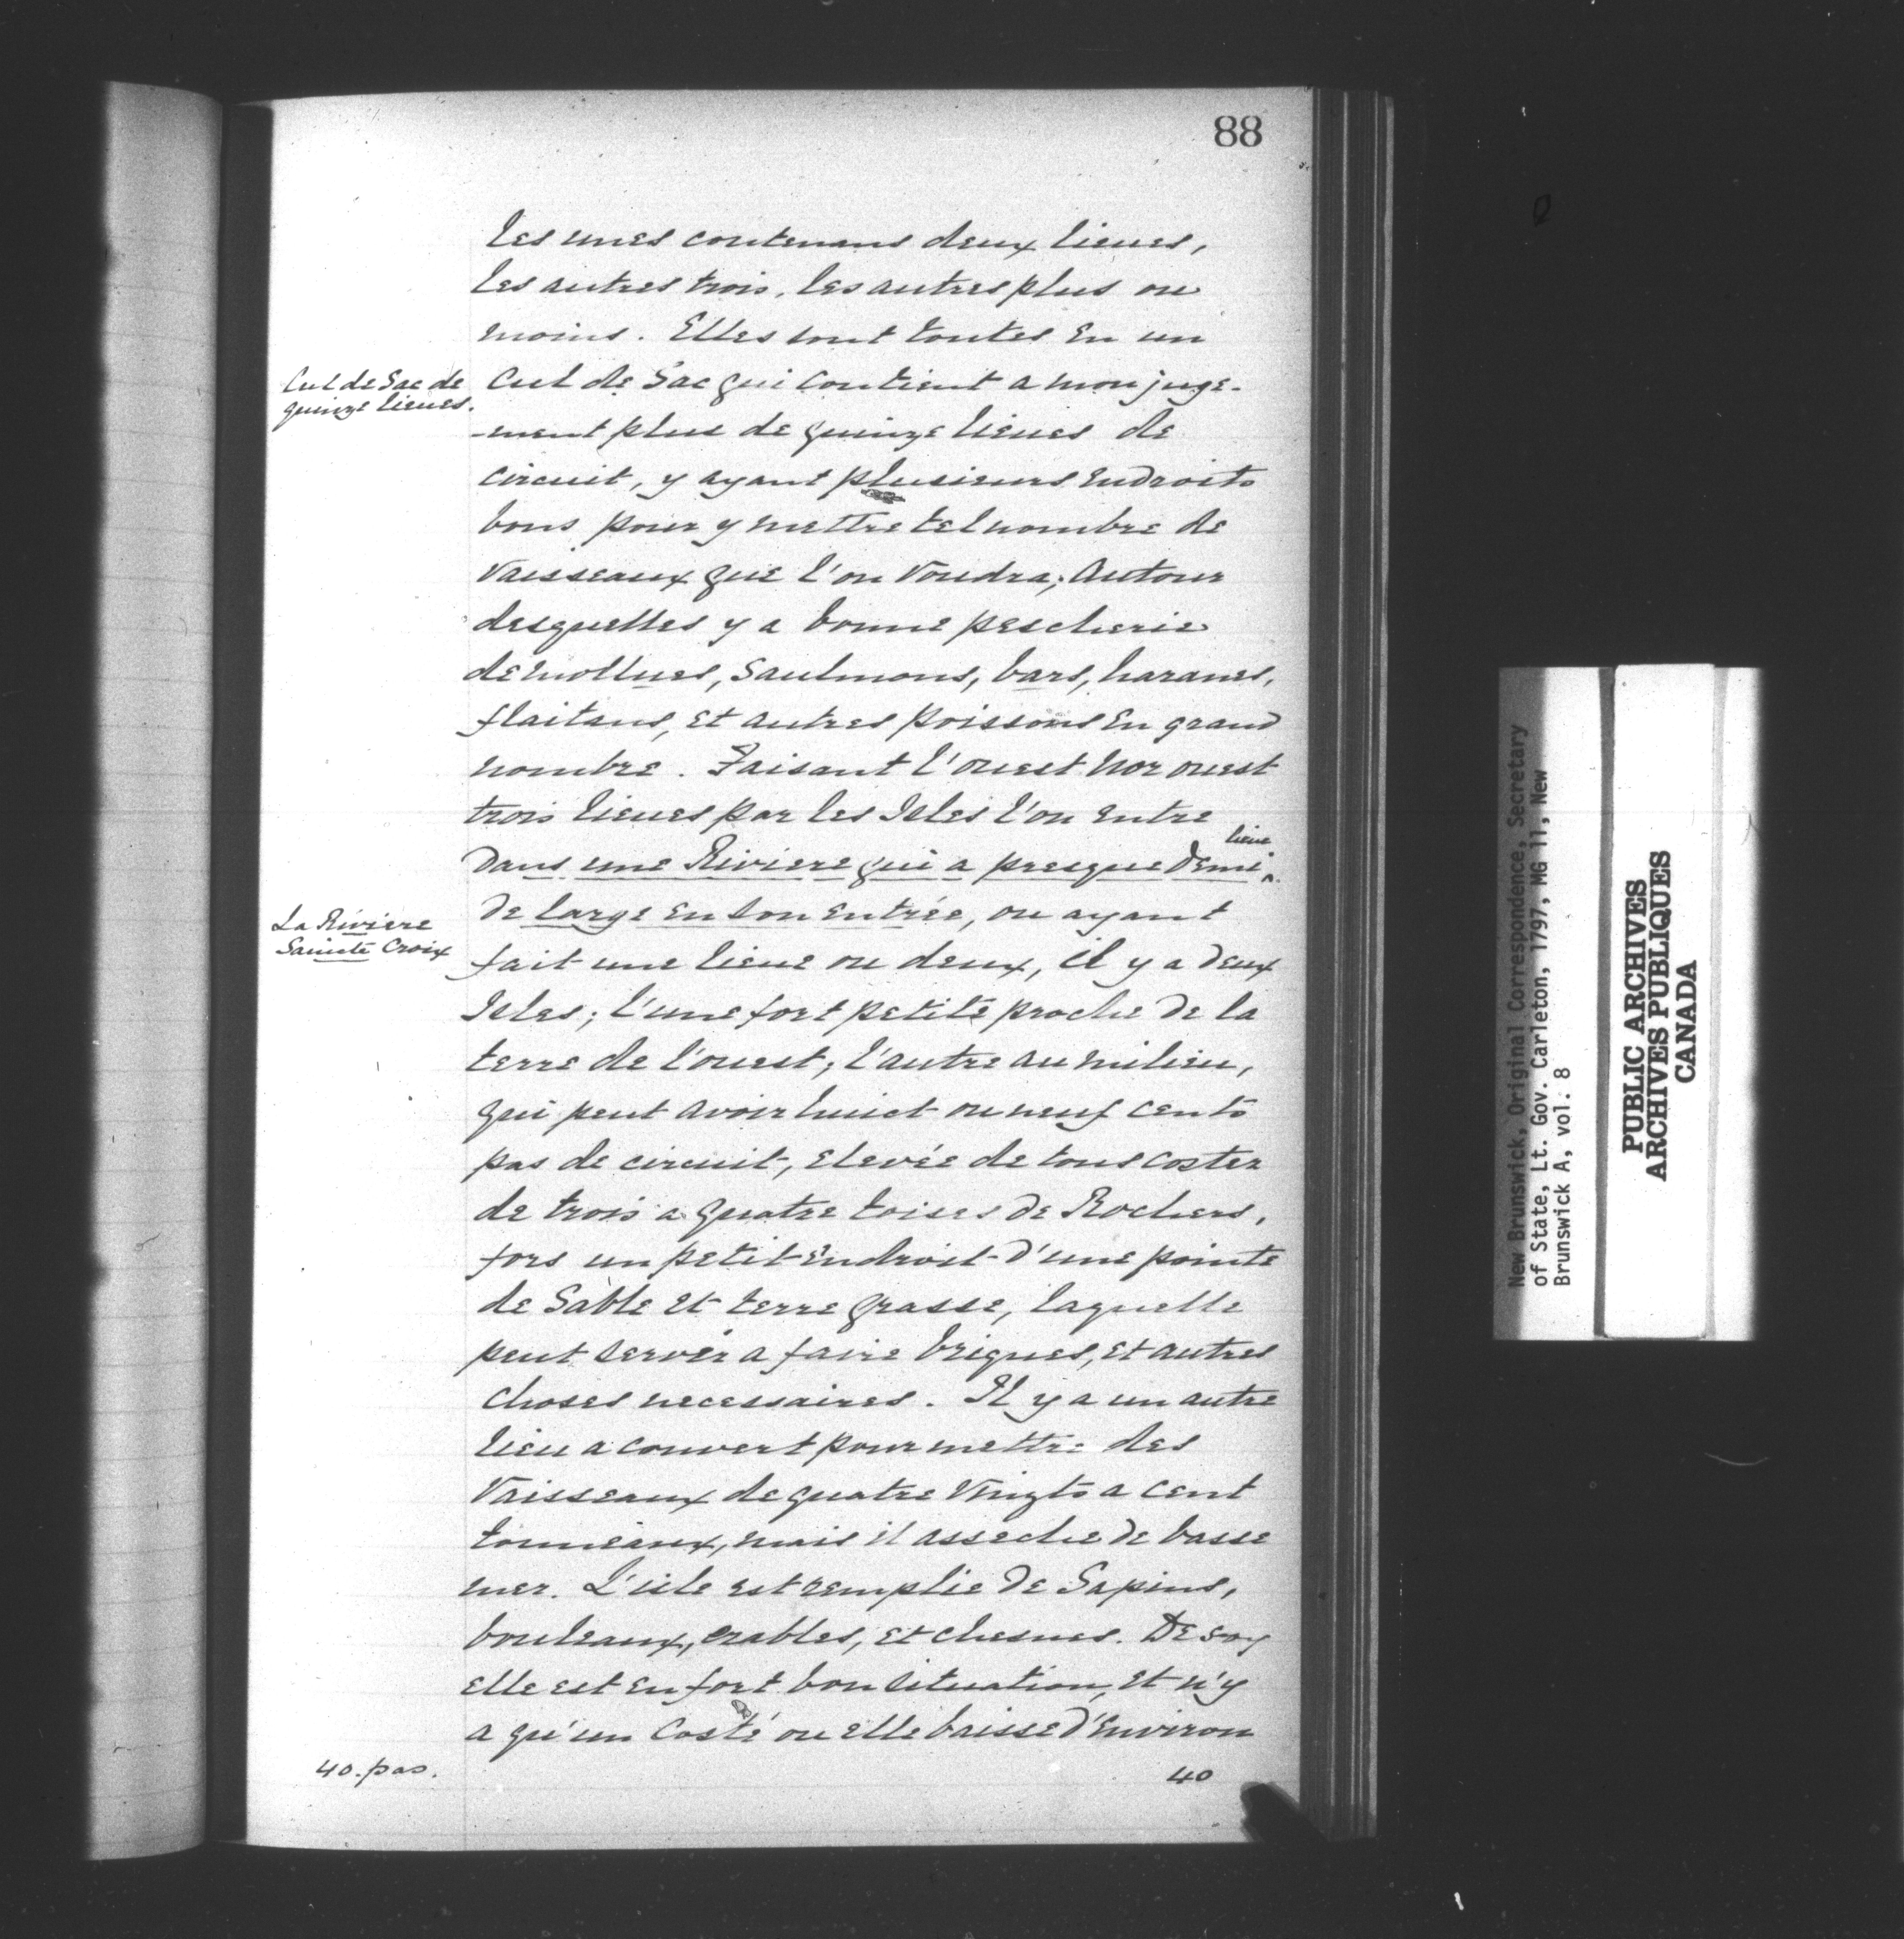 88
les unes contenans deux lieues,
les autres trois, les autres plus ou
moins. Elles sont toutes En un
Cul de Sac de
quinze lieues.
Cul de Sac qui Contient a mon juge-
-ment plus de quinze lieues de
circuit, y ayant plusieurs Endroits
bons pour y mettre tel nombre de
Vaisseaux que l'on Voudra; Autour
desquelles y a bonne pescherie
de mollues, Saulmons, bars, harancs,
flaitans, et autres poissons En grand
nombre. Faisant l'ouest Nor ouest
trois lieues par les Isles l'on Entre
lieue
Dans une Riviere qui a presque Demi ^
La Riviere
Saincte Croix
De large en son entrée, ou ayant
fait une lieue ou deux, il y a Deux
Isles; l'une fort petite proche De la
terre de l'ouest; l'autre au milieu,
qui peut avoir huict ou neuf cents
pas de circuit, elevée de tous costez
de trois a quatre toises De Rochers,
fors un petit Endroit D'une pointe
de Sable et terre grasse, laquelle
peut servir a faire briques, et autres
choses necessaires. Il y a un autre
lieu a couvert pour mettre des
Vaisseaux de quatre Vingts a Cent
tonneaux, mais il asseche De basse
mer. L'isle est remplie De Sapins,
bouleaux, erables, et chesnes. De soy
elle est en fort bon situation, et n'y
a qu'un Costé ou elle baisse D'Environ
40. pas.
40
New Brunswick, Original Correspondence, Secretary
of State, Lt. Gov. Carleton, 1797, MG 11, New
Brunswick A, vol. 8
PUBLIC ARCHIVES
ARCHIVES PUBLIQUES
CANADA